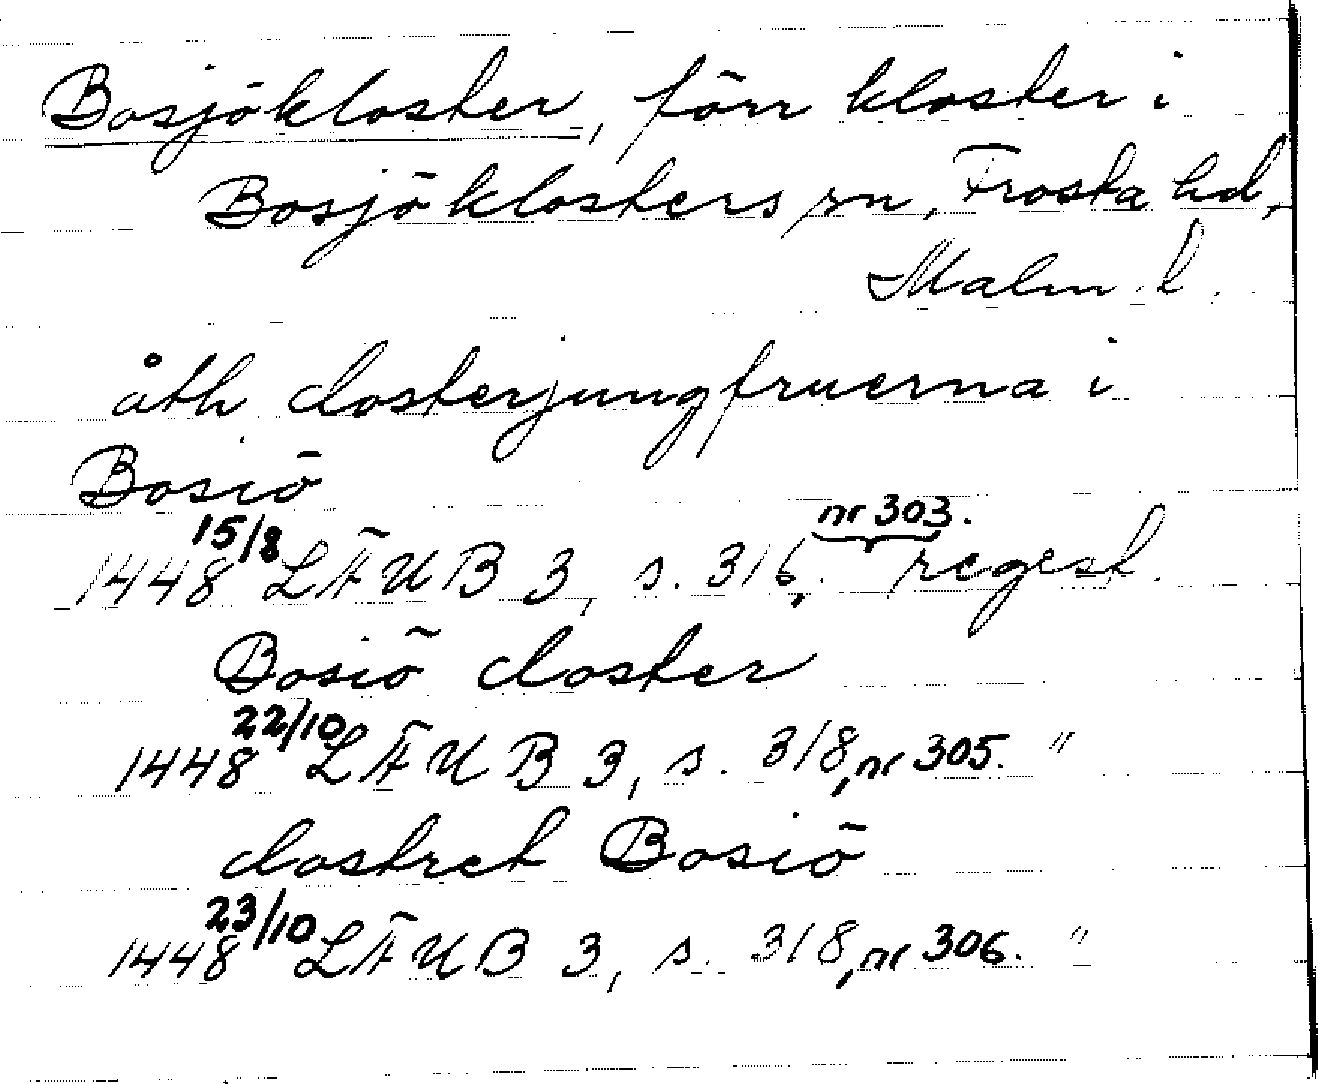 Bosjökloster, förr kloster i
Bosjöklosters sn, Frosta hd,
Malm. l.
åth closterjungfruerna i
Bosiö
1448 15/8 LÄUB 3, s. 316, nr 303. regest.
Bosiö closter
1448 22/10 LÄUB 3, s. 318, nr 305. "
clostret Bosiö
1448 23/10 LÄUB 3, s. 318, nr 306. "